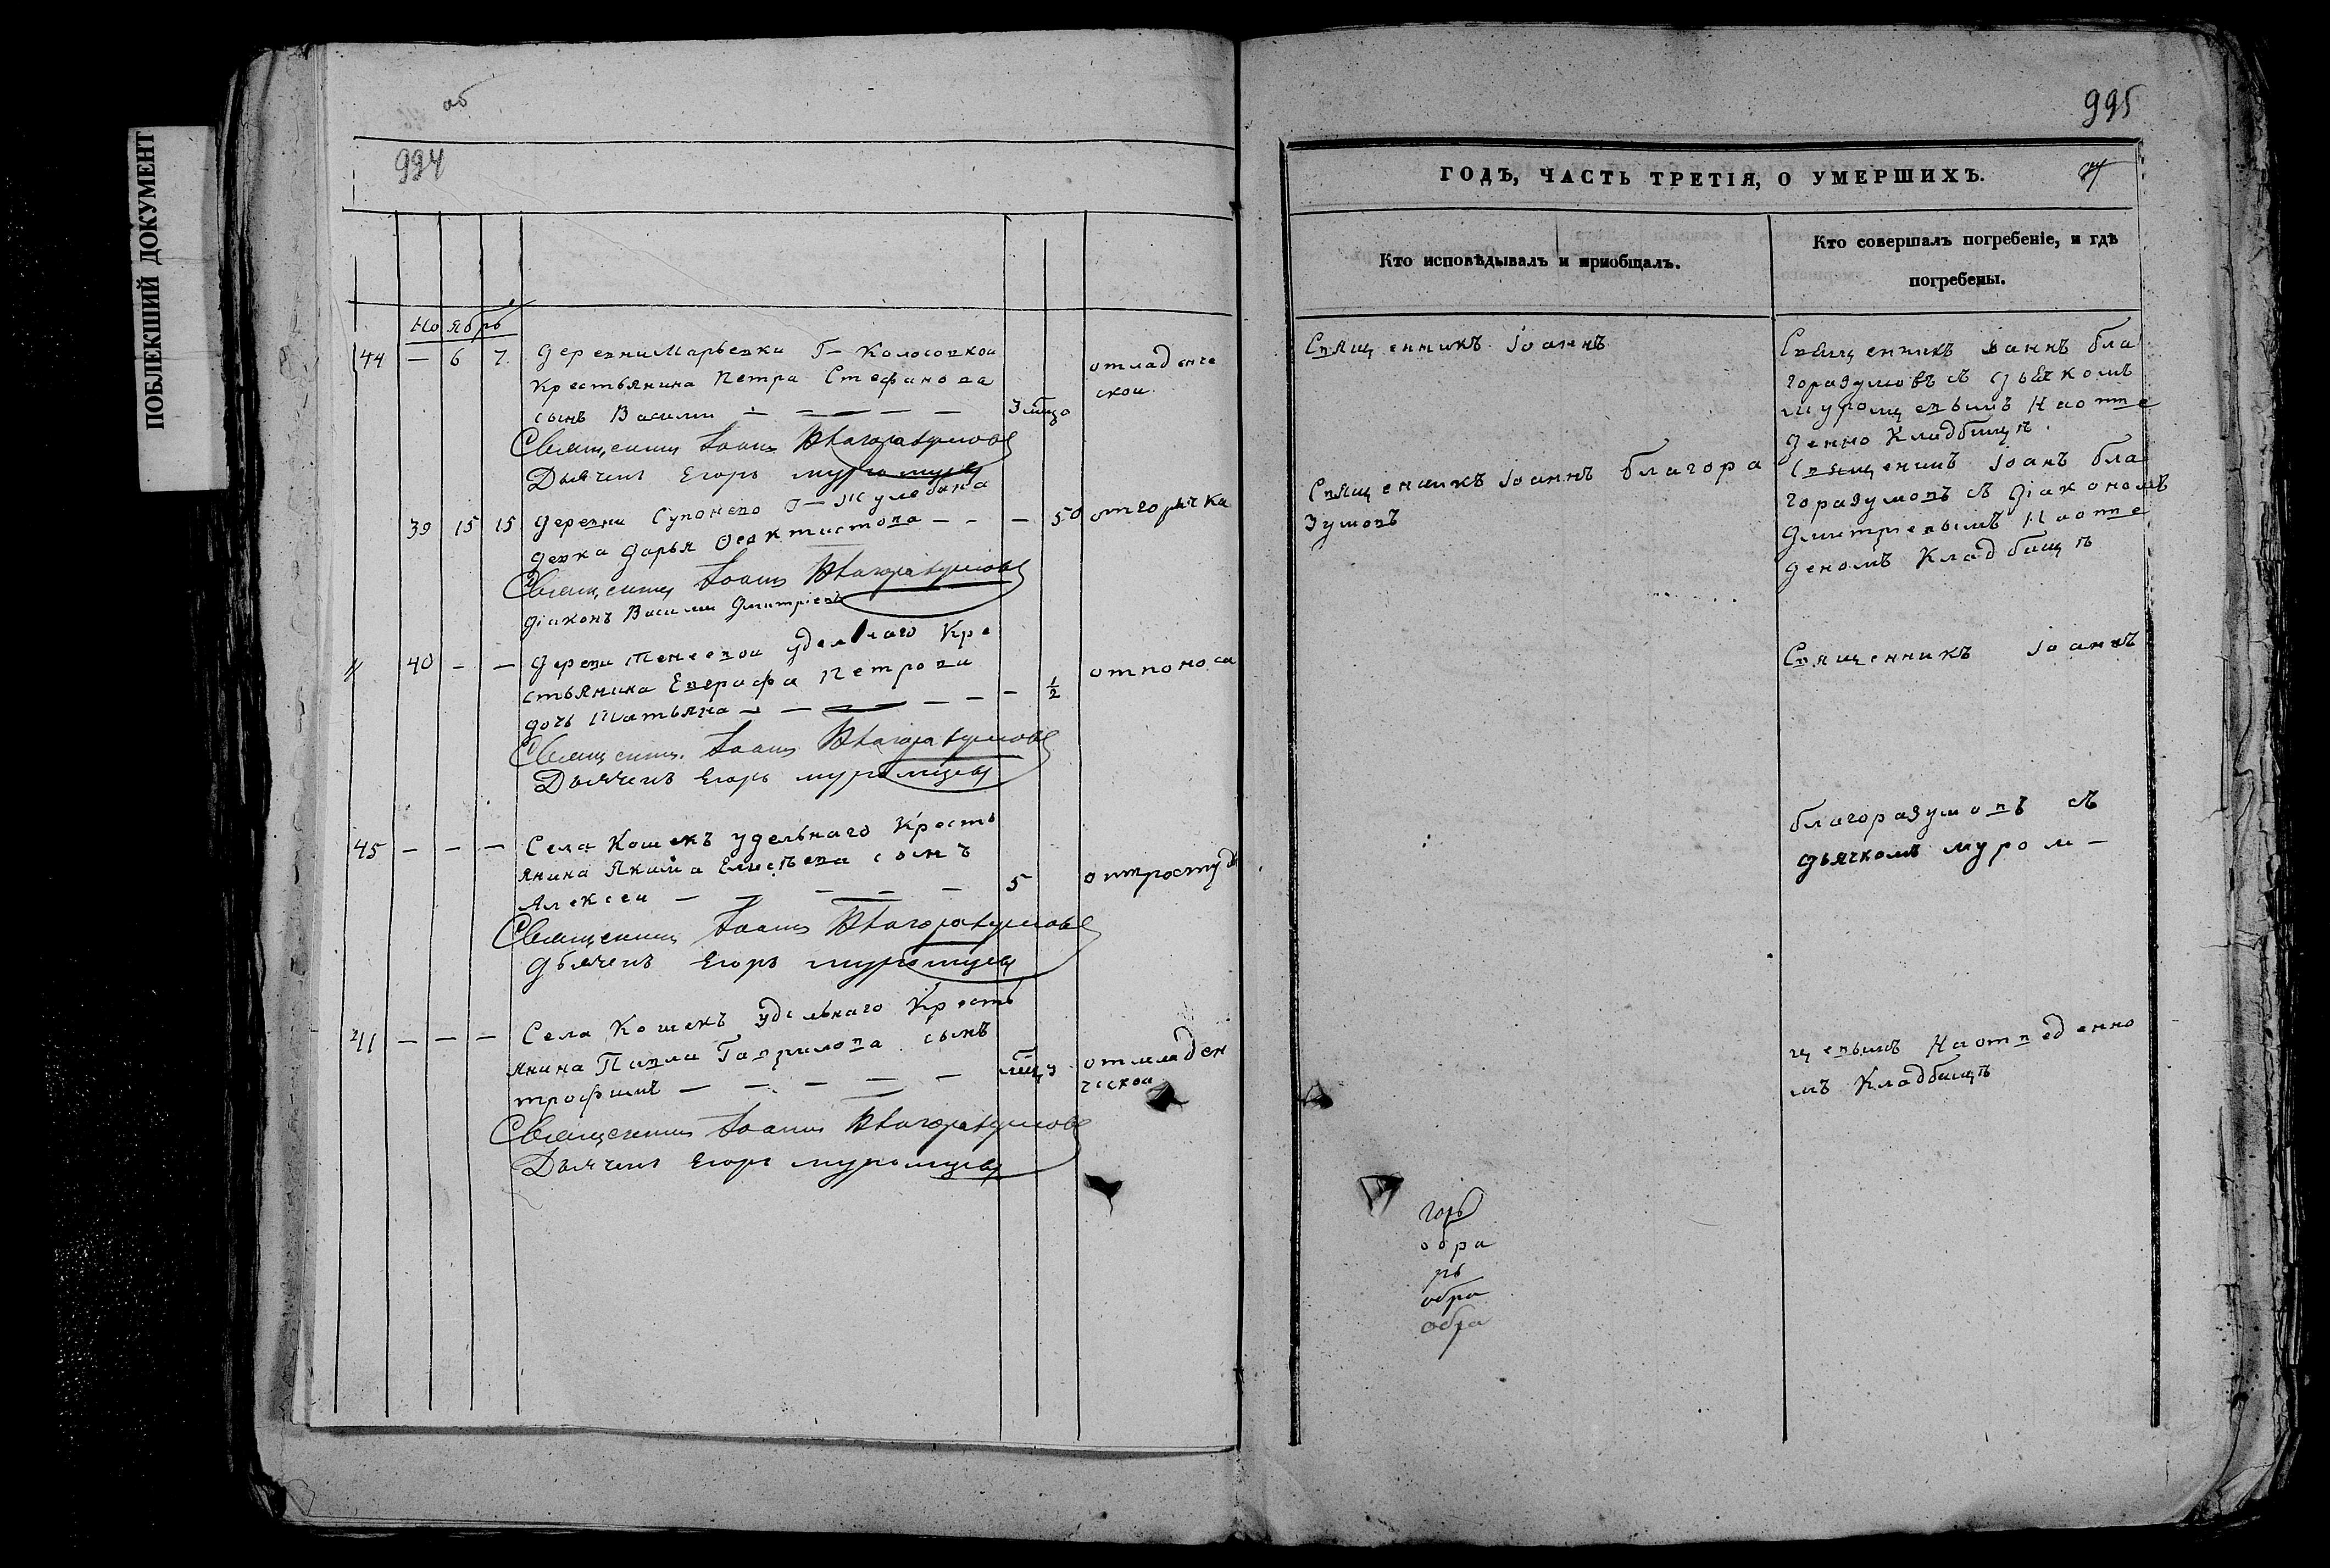 ПОБЛЕКШИЙ ДОКУМЕНТ
об
994
Ноябрь
44 — 6 7 Деревни Марьевки Г— Колосовкои отмладенче
крестьянина Петра Стефанова скои
сынъ Васили — — — — 3 мца
Священникъ Іоаннъ Благоразумовъ
Дьячекъ Егоръ Муромцевъ
39 15 15 Деревни Супонево Г— Жулебина
девка Дарья Феоктистова — — — 50 отгорячка
Священникъ Іоаннъ Благоразумовъ
Діаконъ Васили Дмитріевъ
40 — — Деревни Тенеевои удельнаго кре
стьянина Евграфа Петрова отпоноса
дочь Татьяна — — — — — — ½
Священникъ Іоаннъ Благоразумовъ
Дьячекъ Егоръ Муромцевъ
45 — — — Села Кошекъ удельнаго кресть
янина Якима Елисѣева сынъ
Алексеи — — — — — 5 отпростуд
Священникъ Іоаннъ Благоразумовъ
Дьячекъ Егоръ Муромцевъ
— — — Села Кошекъ удельнаго кресть
янина Павла Гаврилова сынъ отмладен
трофимъ — — — — — ческои
Священникъ Іоаннъ Благоразумовъ
Дьячекъ Егоръ Муромцевъ
995
ГОДЪ, ЧАСТЬ ТРЕТІЯ, О УМЕРШИХЪ.
Кто исповѣдывалъ и приобщалъ.
Кто совершалъ погребеніе, и гдѣ
погребены.
Священникъ Іоаннъ
Священникъ Іоаннъ благора
зумовъ
Священникъ Іоаннъ бла
горазумовъ съ дьячкомъ
муромцевымъ Наотве
денно Кладбищѣ.
Священникъ Іоанъ бла
горазумовъ съ Діакономъ
Дмитріевымъ Наотве
деномъ Кладбищѣ
Священникъ Іоаннъ
благоразумовъ съ
дьячкомъ муром—
цевымъ Наотведенно
мъ Кладбищѣ
обра
рь
обра
обра